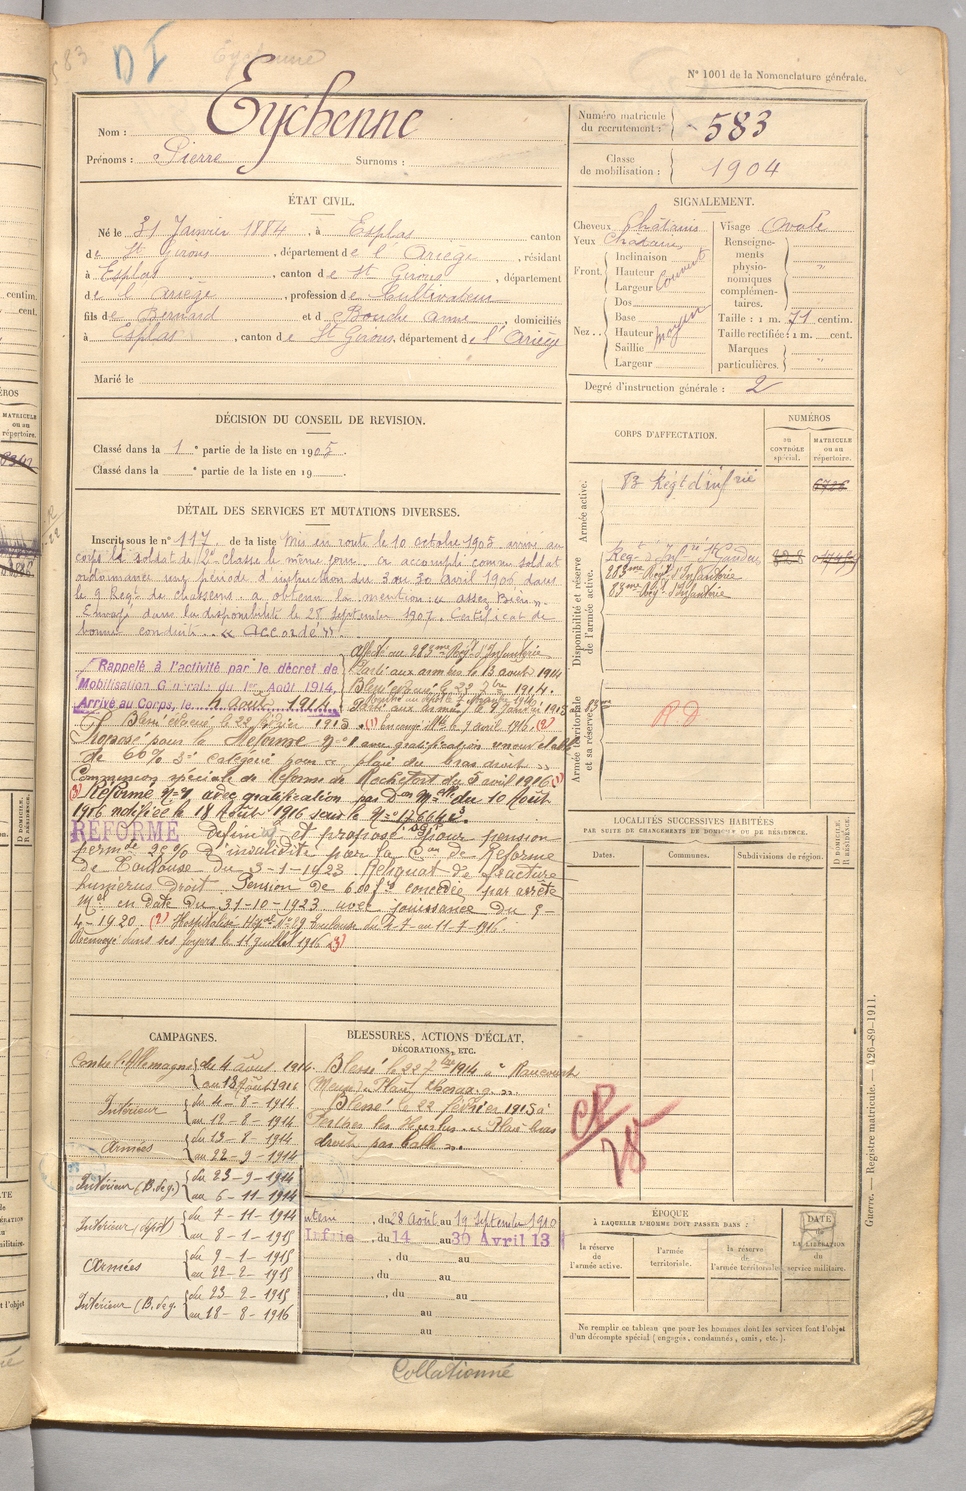 83
D I
Eychenne
N° 1001 de la Nomenclature générale.
Nom : Eychenne
Prénoms : Pierre Surnoms :
Numéro matricule du recrutement : 583
Classe de mobilisation : 1904
ÉTAT CIVIL.
Né le 31 Janvier 1884, à Esplas canton
de St Girons, département de l'Ariège, résidant
à Esplas, canton de St Girons, département
de l'Ariège, profession de Cultivateur
fils de Bernard et de Bouche Anne, domiciliés
à Esplas, canton de St Girons, département de l'Ariège
Marié le
SIGNALEMENT.
Cheveux Châtains
Yeux Chatains
Front. Inclinaison Hauteur Largeur couvert
Nez.. Dos Base Hauteur Saillie Largeur moyen
Visage Ovale
Renseignements physionomiques complémentaires. "
Taille : 1 m. 71 centim.
Taille rectifiée : 1 m. cent.
Marques particulières. "
Degré d'instruction générale : 2
DÉCISION DU CONSEIL DE REVISION.
Classé dans la 1e partie de la liste en 1905.
Classé dans la e partie de la liste en 19
CORPS D'AFFECTATION.
NUMÉROS
au CONTRÔLE spécial.
MATRICULE ou au répertoire.
Armée active.
83e Régt d'infrie
6726
Disponibilité et réserve de l'armée active.
Regt d'Infrie St Gaudens
283ème Régt d'Infanterie
83ème Régt d'Infanterie
Armée territoriale et sa réserve.
83ème
RD
DÉTAIL DES SERVICES ET MUTATIONS DIVERSES.
Inscrit sous le n° 117 de la liste Mis en route le 10 octobre 1905. arrivé au
corps le soldat de 2e classe le même jour. a accompli comme soldat
ordonnance une période d'instruction du 3 au 30 avril 1906 dans
le 9 Regt de chasseurs. a obtenu la mention : « assez Bien ».
Envoyé dans la disponibilité le 28 septembre 1907. Certificat de
bonne conduite.. « Accordé ».
Rappelé à l'activité par le décret de
Mobilisation Générale du 1er Août 1914,
Arrivé au Corps, le 4 août 1914
Affecté au 283ème Régt d'Infanterie
Parti aux armées le 13 aout 1914
Blessé évacué le 22 7bre 1914.
Rentré au dépôt le 7 Novembre 1914
Parti aux armées le 9 Janvier 1915
Blessé évacué le 22 février 1915. (1) En congé le 9 avril 1916. (2)
Proposé pour la Réforme n° 1 avec gratification renouvelable
de 60% 5e catégorie pour « plaie du bras droit »
Commission spéciale de Réforme de Rochefort du 5 avril 1916 (1)
(3) Réformé N° 1 avec gratification par Don Melle du 10 Août
1916 notifiée le 18 Août 1916 sous le N°
RÉFORMÉ Définitif et proposé pour pension
permte 20% d'invalidité par la Con de Réforme
de Toulouse du 3-1-1923. Reliquat de fracture
humérus droit. Pension de 600 frs concédée par arrêté
Mel en date du 31-10-1923 avec jouissance du 9-
4-1920. (2) Hospitalisé Hôpal N° 29 Toulouse du 4-7- au 11-7-1916.
Renvoyé dans ses foyers le 11 juillet 1916 (3)
LOCALITÉS SUCCESSIVES HABITÉES
PAR SUITE DE CHANGEMENTS DE DOMICILE OU DE RÉSIDENCE.
Dates. Communes. Subdivisions de région.
D DOMICILE. R RÉSIDENCE.
CAMPAGNES.
Contre l'Allemagne du 4 août 1914
au 18 Août 1916
Intérieur du 4-8-1914
au 12-8-1914
Armées du 13-8-1914
au 22-9-1914
Intérieur (B. de g.) du 23-9-1914
au 6-11-1914
Intérieur (dépôt) du 7-11-1914
au 8-1-1915
Armées du 9-1-1915
au 22-2-1915
Intérieur (B. de g. du 23-2-1915
au 18-8-1916
BLESSURES, ACTIONS D'ÉCLAT, DÉCORATIONS, ETC.
Blessé le 22 7bre 1914 à Raucourt
(Meuse) « Plaie thorax g. ».
Blessé le 22 février 1915 à
Perthes les Hurlus « Plaie bras
droit par balle ».
, du 28 Août au 19 Septembre 1910
Infrie , du 14 au 30 Avril 13
, du au
, du au
, du au
au
au
CR
78
ÉPOQUE
À LAQUELLE L'HOMME DOIT PASSER DANS :
la réserve de l'armée active.
l'armée territoriale.
la réserve de l'armée territoriale.
DATE de LA LIBÉRATION du service militaire.
Ne remplir ce tableau que pour les hommes dont les services font l'objet
d'un décompte spécial (engagés, condamnés, omis, etc.).
Guerre. — Registre matricule. — 426-89-1911.
Collationné